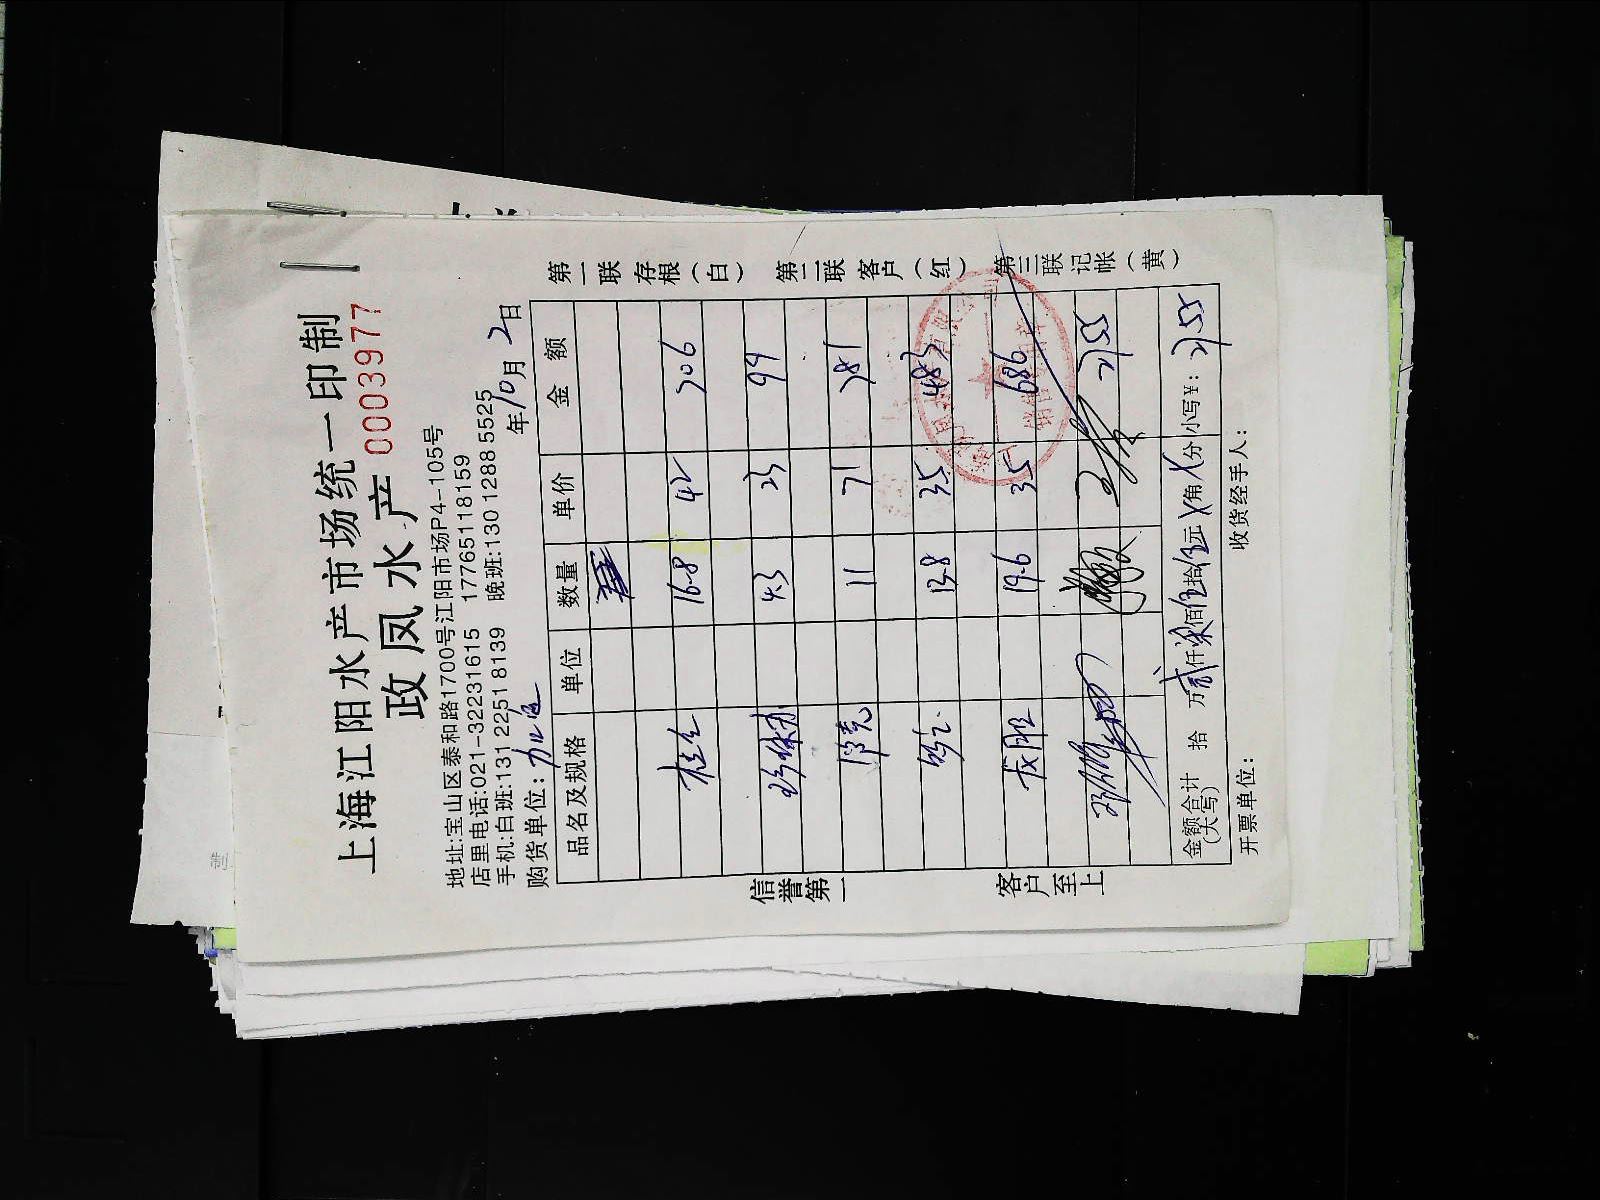 上海江阳水产市场统一印制
政凤水产 0003977
地址:宝山区泰和路1700号江阳市场P4-105号
店里电话:021-32231615 17765118159
手机:白班:131 2251 8139 晚班:130 1288 5525
购货单位: 年10月2日
品名及规格 单位 数量 单价 金额
16.8 42 706
4.3 23 99
11 71 781
13.8 35 483
19.6 35 686
2755
金额合计(大写) 拾 万贰仟柒佰伍拾伍元 分 小写¥: 2755
开票单位: 收货经手人:
第一联存根(白) 第二联客户(红) 第三联记帐(黄)
信誉第一 客户至上